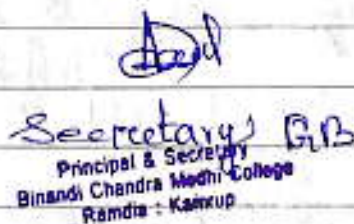 Secretary, GB
Principal & Secretary
Binandi Chandra Medhi College
Ramdia : Kamrup